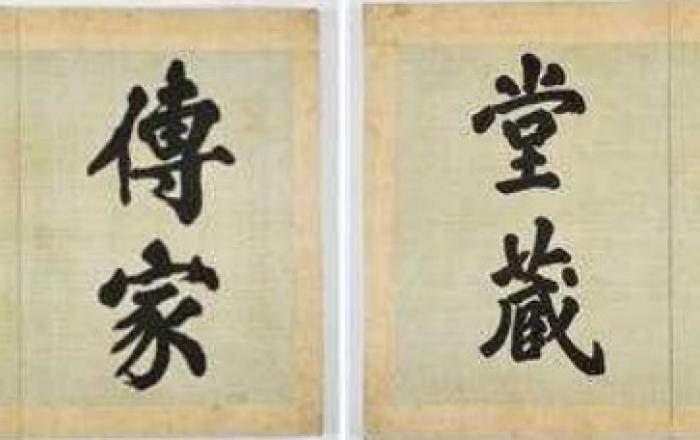 傳家
堂藏